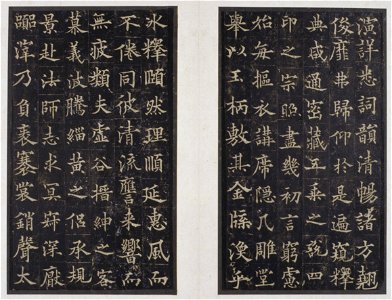 演詳悉詞韻清暢翹
俊靡弗歸仰於是遍窺釋
典咸通密藏五乘之說四
印之宗照盡幾初言窮慮
始每樞衣講席隱几雕堂
舉以玉柄敷其金牒渙乎
冰釋頤然理順延惠風而
不倦同彼清流應來響而
無疲類夫虛谷搢紳之客
慕義波騰緇黃之侶承規
景赴法師志求冥寂深厭
囂滓乃負袠褰裳銷聲太